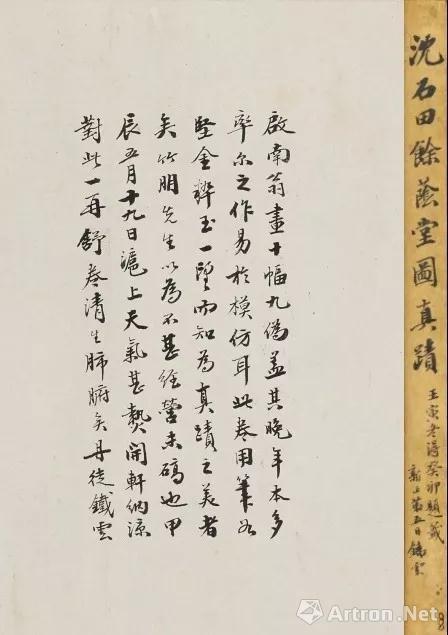 沈石田餘蔭堂圖真蹟
壬寅老得癸卯題籤
新正第五日鐵雲
啟南翁畫十幅九偽蓋其晚年本多
率尔之作易於模仿耳此卷用筆如
堅金粹玉一望而知為真蹟之美者
矣竹朋先生以為不甚經營未礄也甲
辰五月十九日滬上天氣甚熱開軒納涼
對此一再舒卷清生肺腑矣丹徒鐵雲
雅昌藝術網
Artron.Net